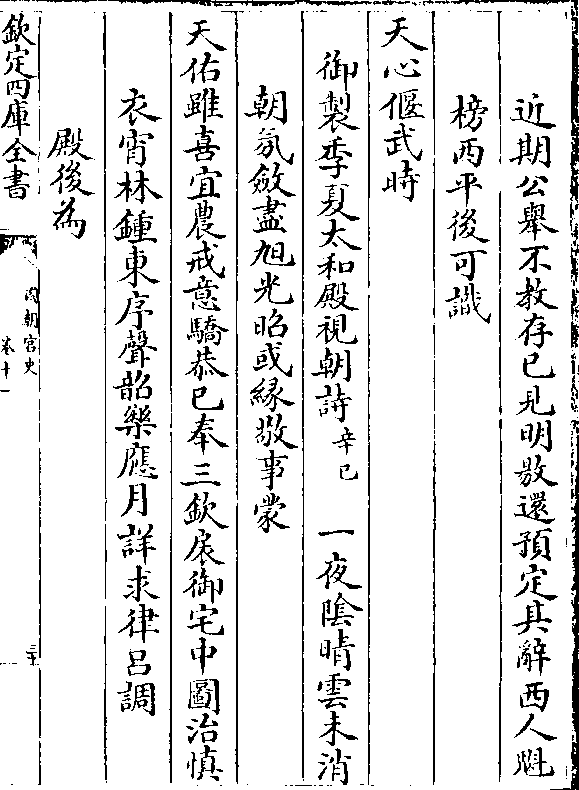 近期公舉不教存已見明敭還預定其辭西人魁
榜西平後可識
天心偃武時
御製季夏太和殿視朝詩辛巳 一夜陰晴雲未消
朝氛斂盡旭光昭或緣敬事蒙
天佑雖喜宜農戒意驕恭己奉三欽扆御宅中圖治慎
衣宵林鍾東序聲韶樂應月詳求律呂調
殿後為
欽定四庫全書
國朝宮史
卷十一
三十